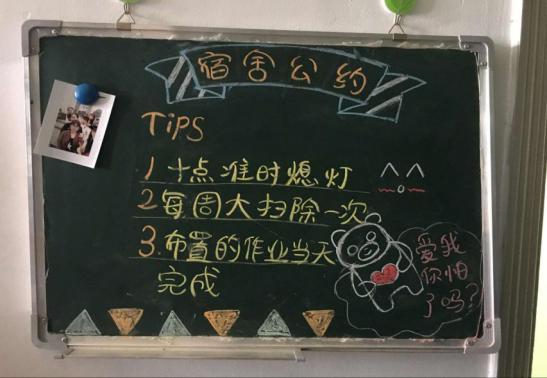 宿舍公约
TiPS
1 十点准时熄灯
2 每周大扫除一次
3. 布置的作业当天
完成
爱我
你怕
了吗?